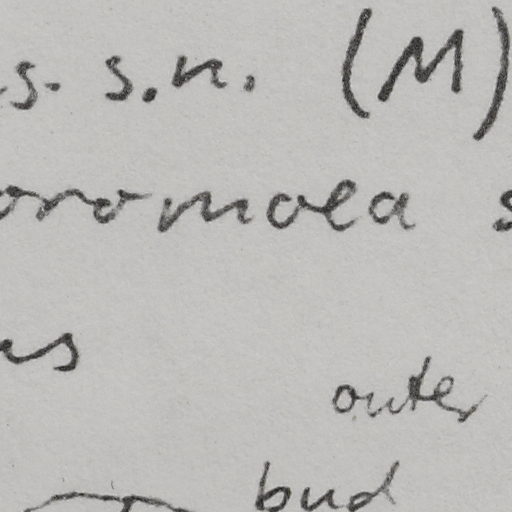 s. s.n. (M)
oromoea s
us
outer
bud